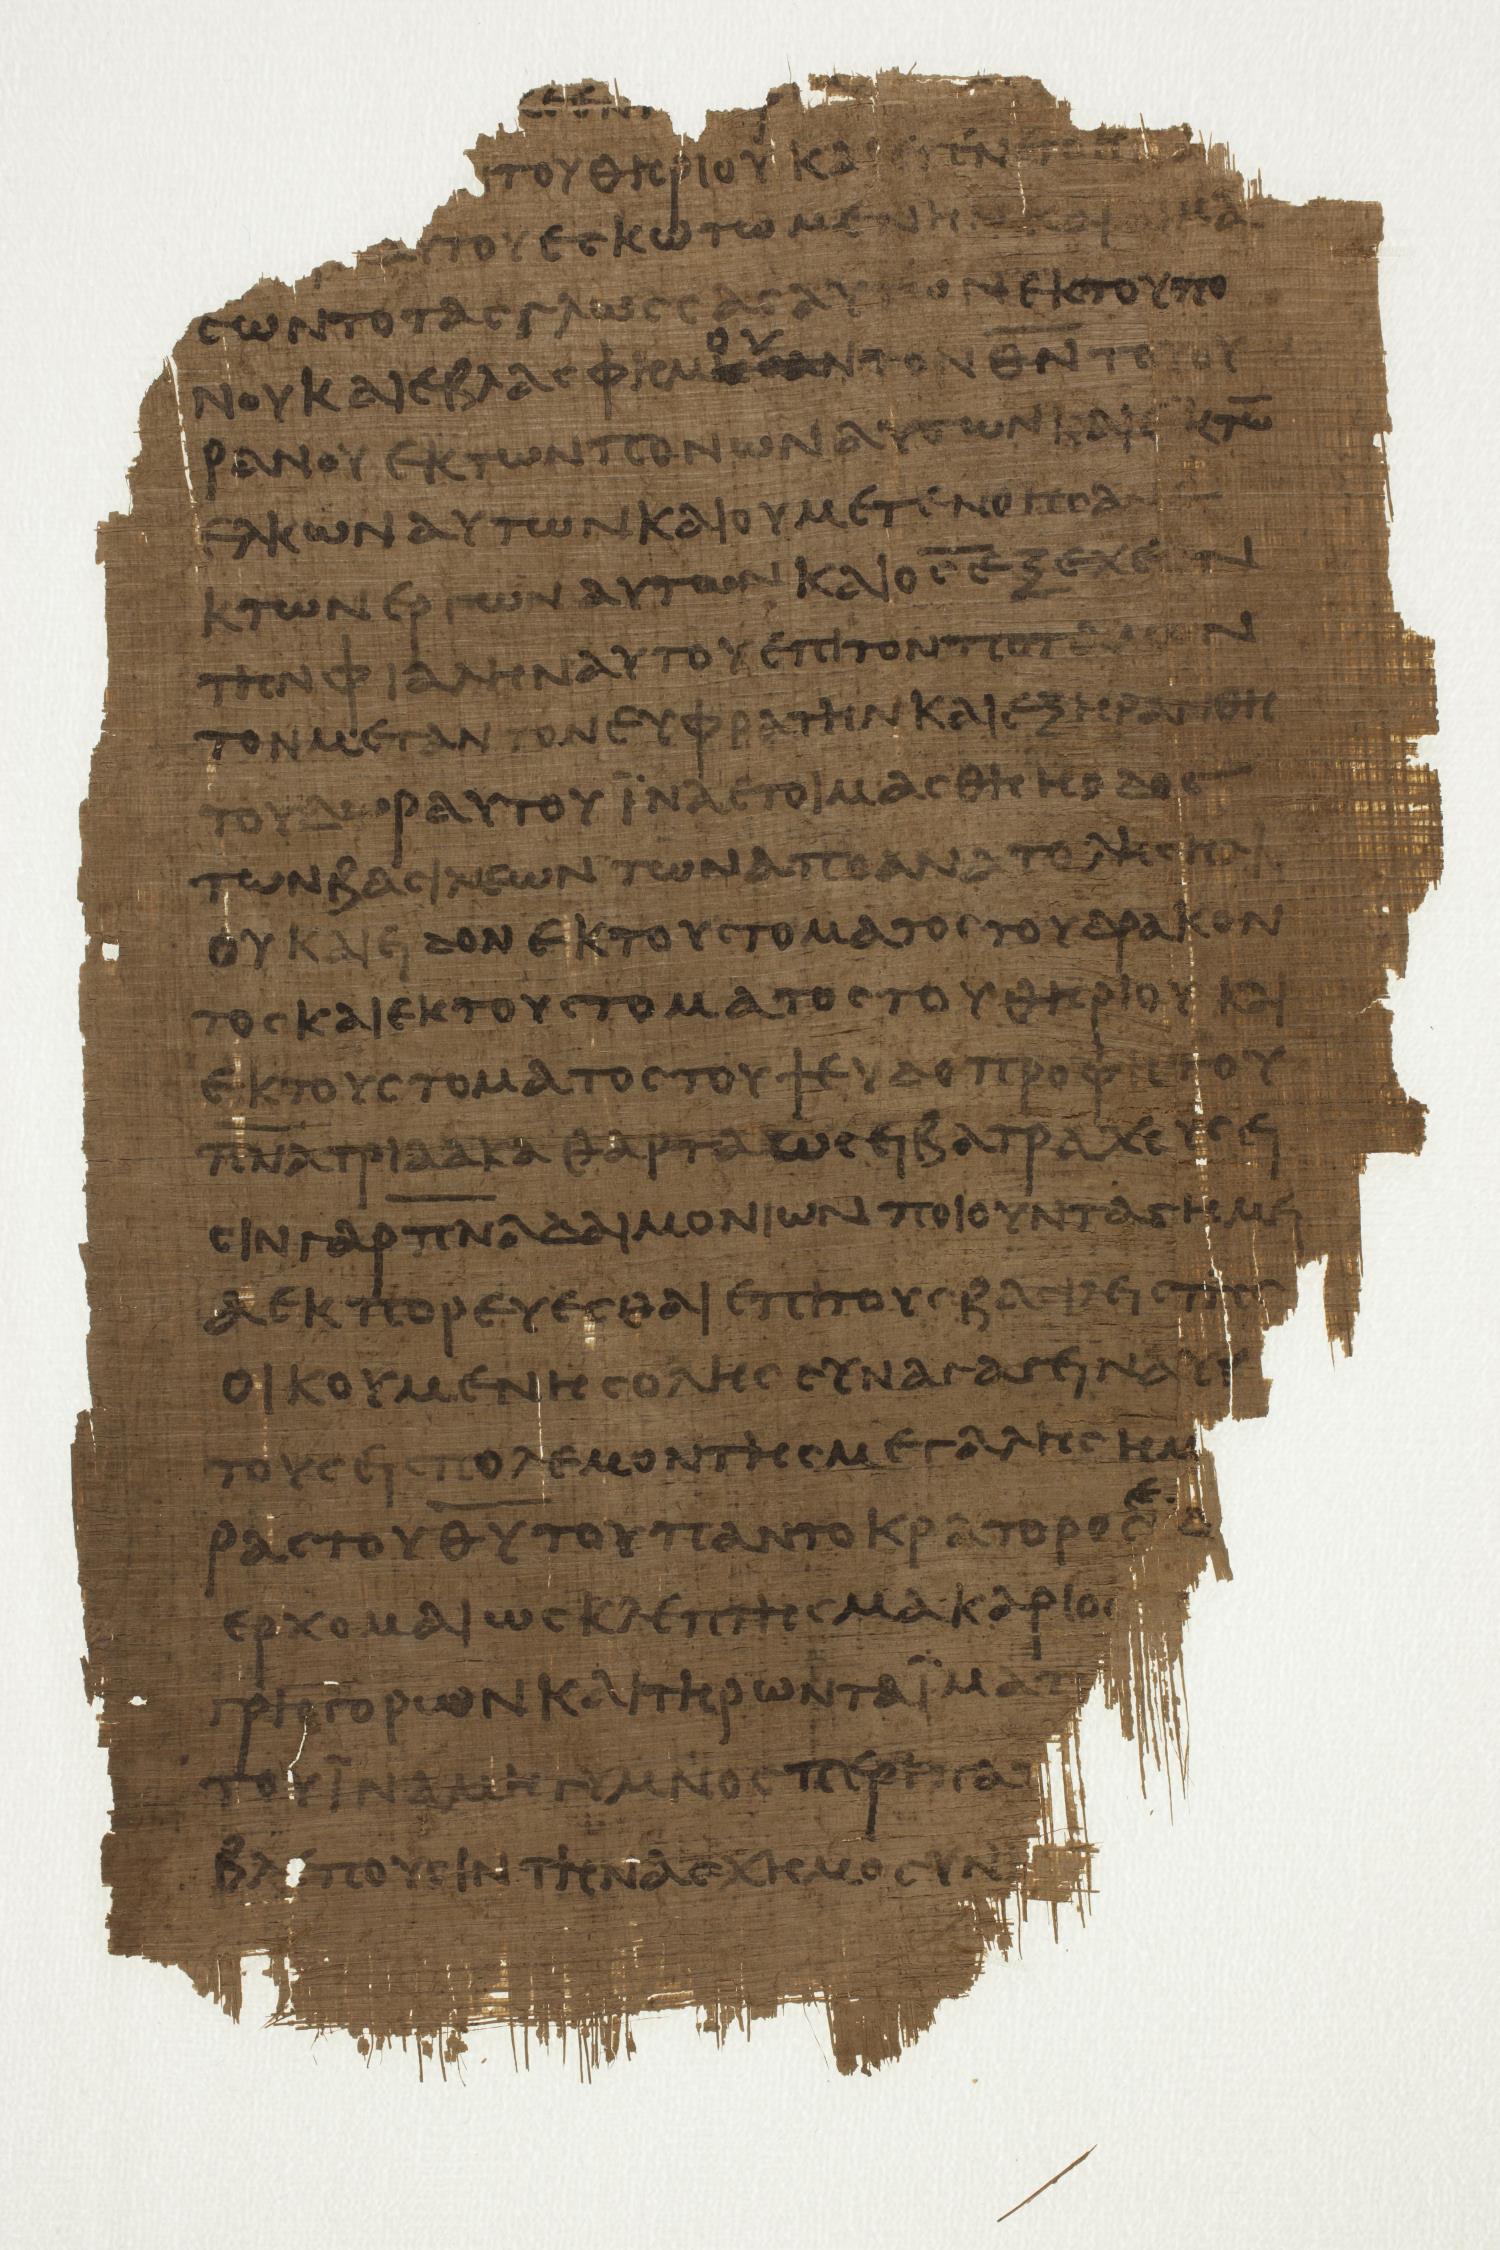 ΤΟΥ ΘΗΡΙΟΥ
ΑΥΤΟΥ ΕϹΚΩΤΩΜΕΝΗ
ϹΩΝΤΟ ΤΑϹ ΓΛΩϹϹΑϹ ΑΥΤΩΝ ΕΚ ΤΟΥ ΠΟ
ΝΟΥ ΚΑΙ ΕΒΛΑϹΦΗΜΟΥΝ ΤΟΝ Θ̅Ν̅ ΤΟΥ ΟΥ
ΡΑΝΟΥ ΕΚ ΤΩΝ ΠΟΝΩΝ ΑΥΤΩΝ ΚΑΙ ΕΚ ΤΩ̅
ΕΛΚΩΝ ΑΥΤΩΝ ΚΑΙ ΟΥ ΜΕΤΕΝΟΗϹΑΝ Ε
Κ ΤΩΝ ΕΡΓΩΝ ΑΥΤΩΝ ΚΑΙ Ο Ϛ̅ ΕΞΕΧΕΕΝ
ΤΗΝ ΦΙΑΛΗΝ ΑΥΤΟΥ ΕΠΙ ΤΟΝ ΠΟΤΑΜΟΝ
ΤΟΝ ΜΕΓΑΝ ΤΟΝ ΕΥΦΡΑΤΗΝ ΚΑΙ ΕΞΗΡΑΝΘΗ
ΤΟ ΥΔΩΡ ΑΥΤΟΥ ΪΝΑ ΕΤΟΙΜΑϹΘΗ Η ΟΔΟϹ
ΤΩΝ ΒΑϹΙΛΕΩΝ ΤΩΝ ΑΠΟ ΑΝΑΤΟΛΗϹ ΗΛΙ
ΟΥ ΚΑΙ ΕΙΔΟΝ ΕΚ ΤΟΥ ϹΤΟΜΑΤΟϹ ΤΟΥ ΔΡΑΚΟΝ
ΤΟϹ ΚΑΙ ΕΚ ΤΟΥ ϹΤΟΜΑΤΟϹ ΤΟΥ ΘΗΡΙΟΥ ΚΑΙ
ΕΚ ΤΟΥ ϹΤΟΜΑΤΟϹ ΤΟΥ ΨΕΥΔΟΠΡΟΦΗΤΟΥ
Π̅Ν̅Α̅ ΤΡΙΑ ΑΚΑΘΑΡΤΑ ΩϹΕΙ ΒΑΤΡΑΧΟΥϹ ΕΙ
ϹΙΝ ΓΑΡ Π̅Ν̅Α̅ ΔΑΙΜΟΝΙΩΝ ΠΟΙΟΥΝΤΑ ϹΗΜΕΙ
Α ΕΚΠΟΡΕΥΕϹΘΑΙ ΕΠΙ ΤΟΥϹ ΒΑϹΙΛΕΙϹ ΤΗϹ
ΟΙΚΟΥΜΕΝΗϹ ΟΛΗϹ ϹΥΝΑΓΑΓΕΙΝ ΑΥ
ΤΟΥϹ ΕΙϹ ΠΟΛΕΜΟΝ ΤΗϹ ΜΕΓΑΛΗϹ ΗΜ
ΡΑϹ ΤΟΥ Θ̅Υ̅ ΤΟΥ ΠΑΝΤΟΚΡΑΤΟΡΟϹ
ΕΡΧΟΜΑΙ ΩϹ ΚΛΕΠΤΗϹ ΜΑΚΑΡΙΟϹ
ΓΡΗΓΟΡΩΝ ΚΑΙ ΤΗΡΩΝ ΤΑ ΪΜΑΤ
ΤΟΥ ΪΝΑ ΜΗ ΓΥΜΝΟϹ ΠΕΡΙΠΑ
ΒΛΕΠΟΥϹΙΝ ΤΗΝ ΑϹΧΗΜΟϹΥΝ